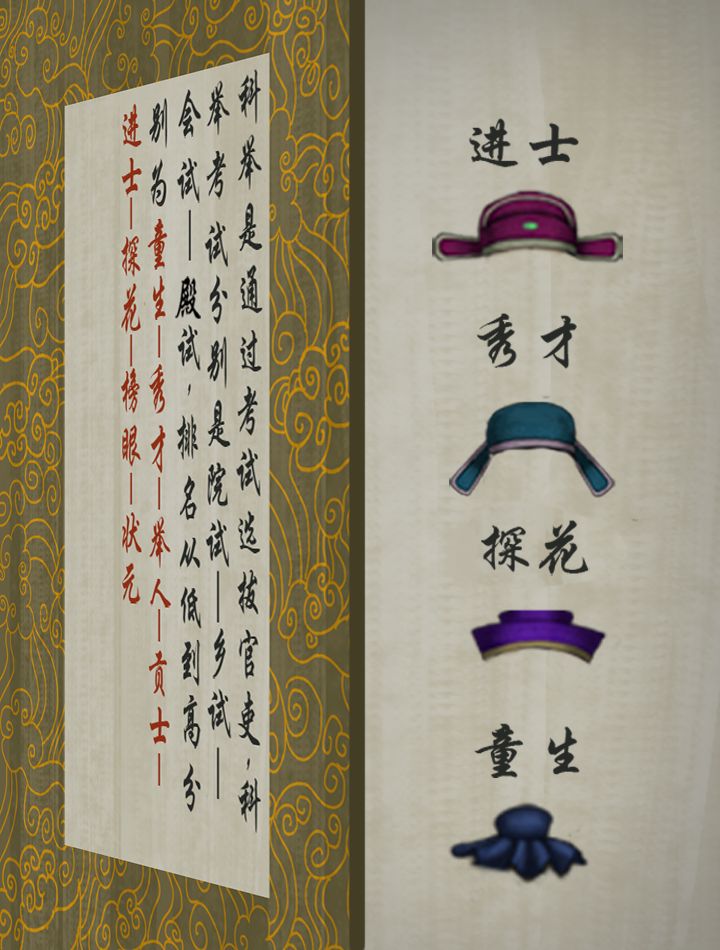 科举是通过考试选拔官吏，科
举考试分别是院试—乡试—
会试—殿试，排名从低到高分
别为童生—秀才—举人—贡士—
进士—探花—榜眼—状元
进士
秀才
探花
童生